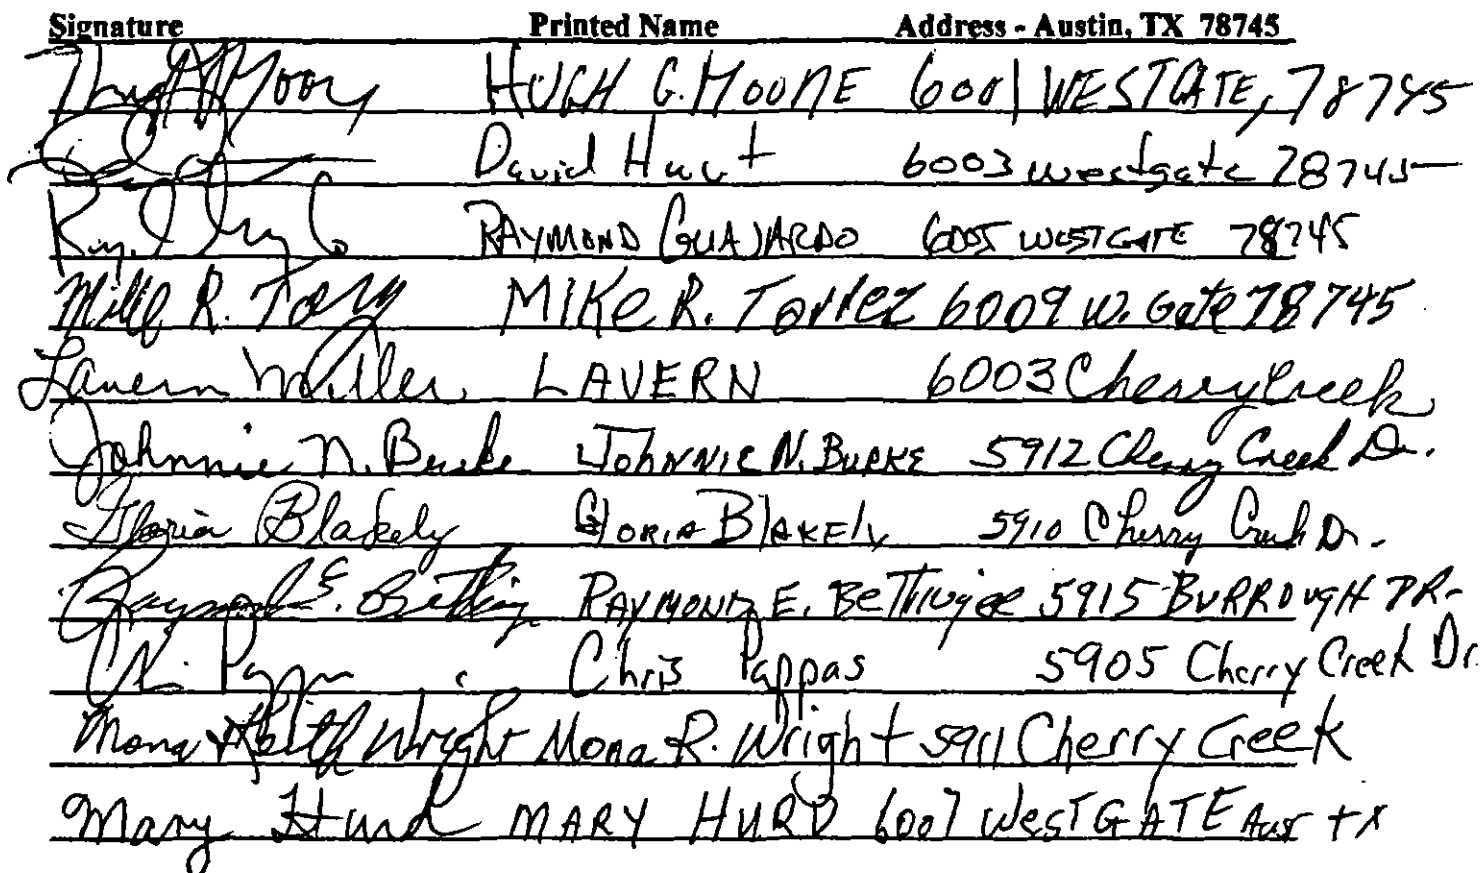 Signature Printed Name Address - Austin, TX 78745
HUGH G. MOORE 6001 WESTGATE, 78745
David Hurt 6003 westgate 78745
RAYMOND GUAJARDO 6005 WESTGATE 78745
R. MIKE R. Torrez 6009 W. Gate 78745
Lavern Miller LAVERN 6003 Cherry Creek
Johnnie N. Burke JOHNNIE N. BURKE 5912 Cherry Creek Dr.
Gloria Blakely GLORIA BLAKELY 5910 Cherry Creek Dr.
Raymond E. RAYMOND E. 5915 BURROUGH DR.
Chris Pappas 5905 Cherry Creek Dr.
Mona Keith Wright Mona R. Wright 5911 Cherry Creek
Mary Hurd MARY HURD 6007 WESTGATE Aust TX